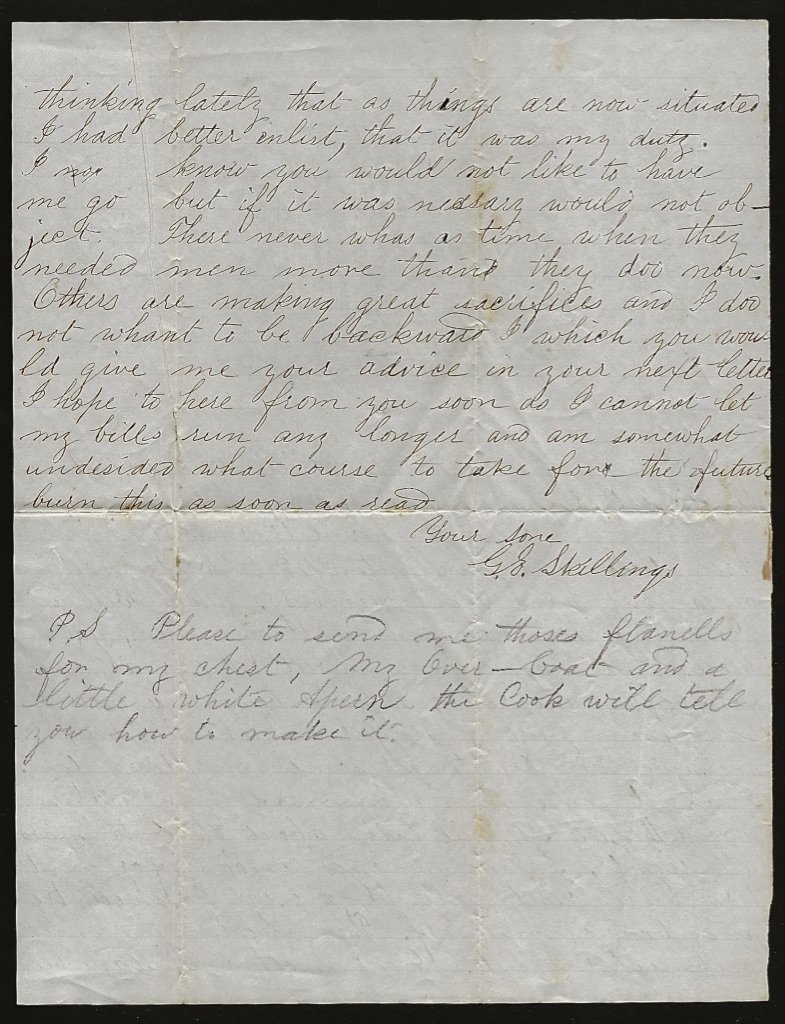 thinking lately that as things are now situated
I had better enlist, that it was my duty.
I know you would not like to have
me go but if it was necsary would not ob-
ject. There never whas a time when they
needed men more than they doo now.
Others are making great sacrifices and I doo
not whant to be backward I which you wou
ld give me your advice in your next letter
I hope to here from you soon as I cannot let
my bills run any longer and am somewhat
undesided what course to take for the future
burn this as soon as read
Your sone
G. E. Skillings
P.S Please to send me thoses flanells
for my chest, My Over-Coat and a
little white Apern the Cook will tell
you how to make it.